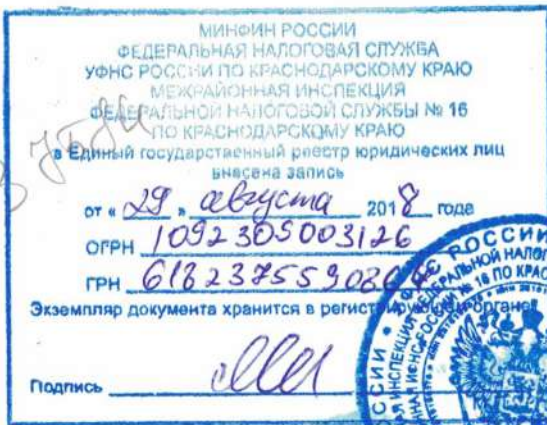 МИНФИН РОССИИ
ФЕДЕРАЛЬНАЯ НАЛОГОВАЯ СЛУЖБА
УФНС РОССИИ ПО КРАСНОДАРСКОМУ КРАЮ
МЕЖРАЙОННАЯ ИНСПЕКЦИЯ
ФЕДЕРАЛЬНОЙ НАЛОГОВОЙ СЛУЖБЫ № 16
ПО КРАСНОДАРСКОМУ КРАЮ
в Единый государственный реестр юридических лиц
внесена запись
от « 29 » августа 2018 года
ОГРН 1092309003126
ГРН
Экземпляр документа хранится в регистрирующем органе
Подпись